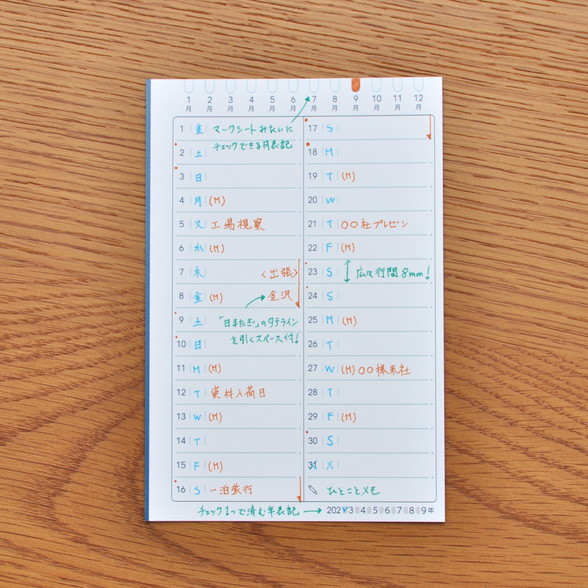 1 2 3 4 5 6 7 8 9 10 11 12
月 月 月 月 月 月 月 月 月 月 月 月
1 金 マークシートみたいに
2 土 チェックできる月表記
3 日
4 月 (M)
5 火 工場視察
6 水 (M)
7 木 〈出張〉
8 金 (M) → 金沢
9 土 「日またぎ」のタテライン
10 日 を引くスペース付!
11 M (M)
12 T 資料入荷日
13 W (M)
14 T
15 F (M)
16 S 一泊旅行
17 S
18 M
19 T (M)
20 W
21 T 〇〇社プレゼン
22 F (M)
23 S 広々行間8mm!
24 S
25 M (M)
26 T
27 W (M) 〇〇様来社
28 T
29 F (M)
30 S
31 X
ひとことメモ
チェック1つで済む年表記 → 202 3 4 5 6 7 8 9年